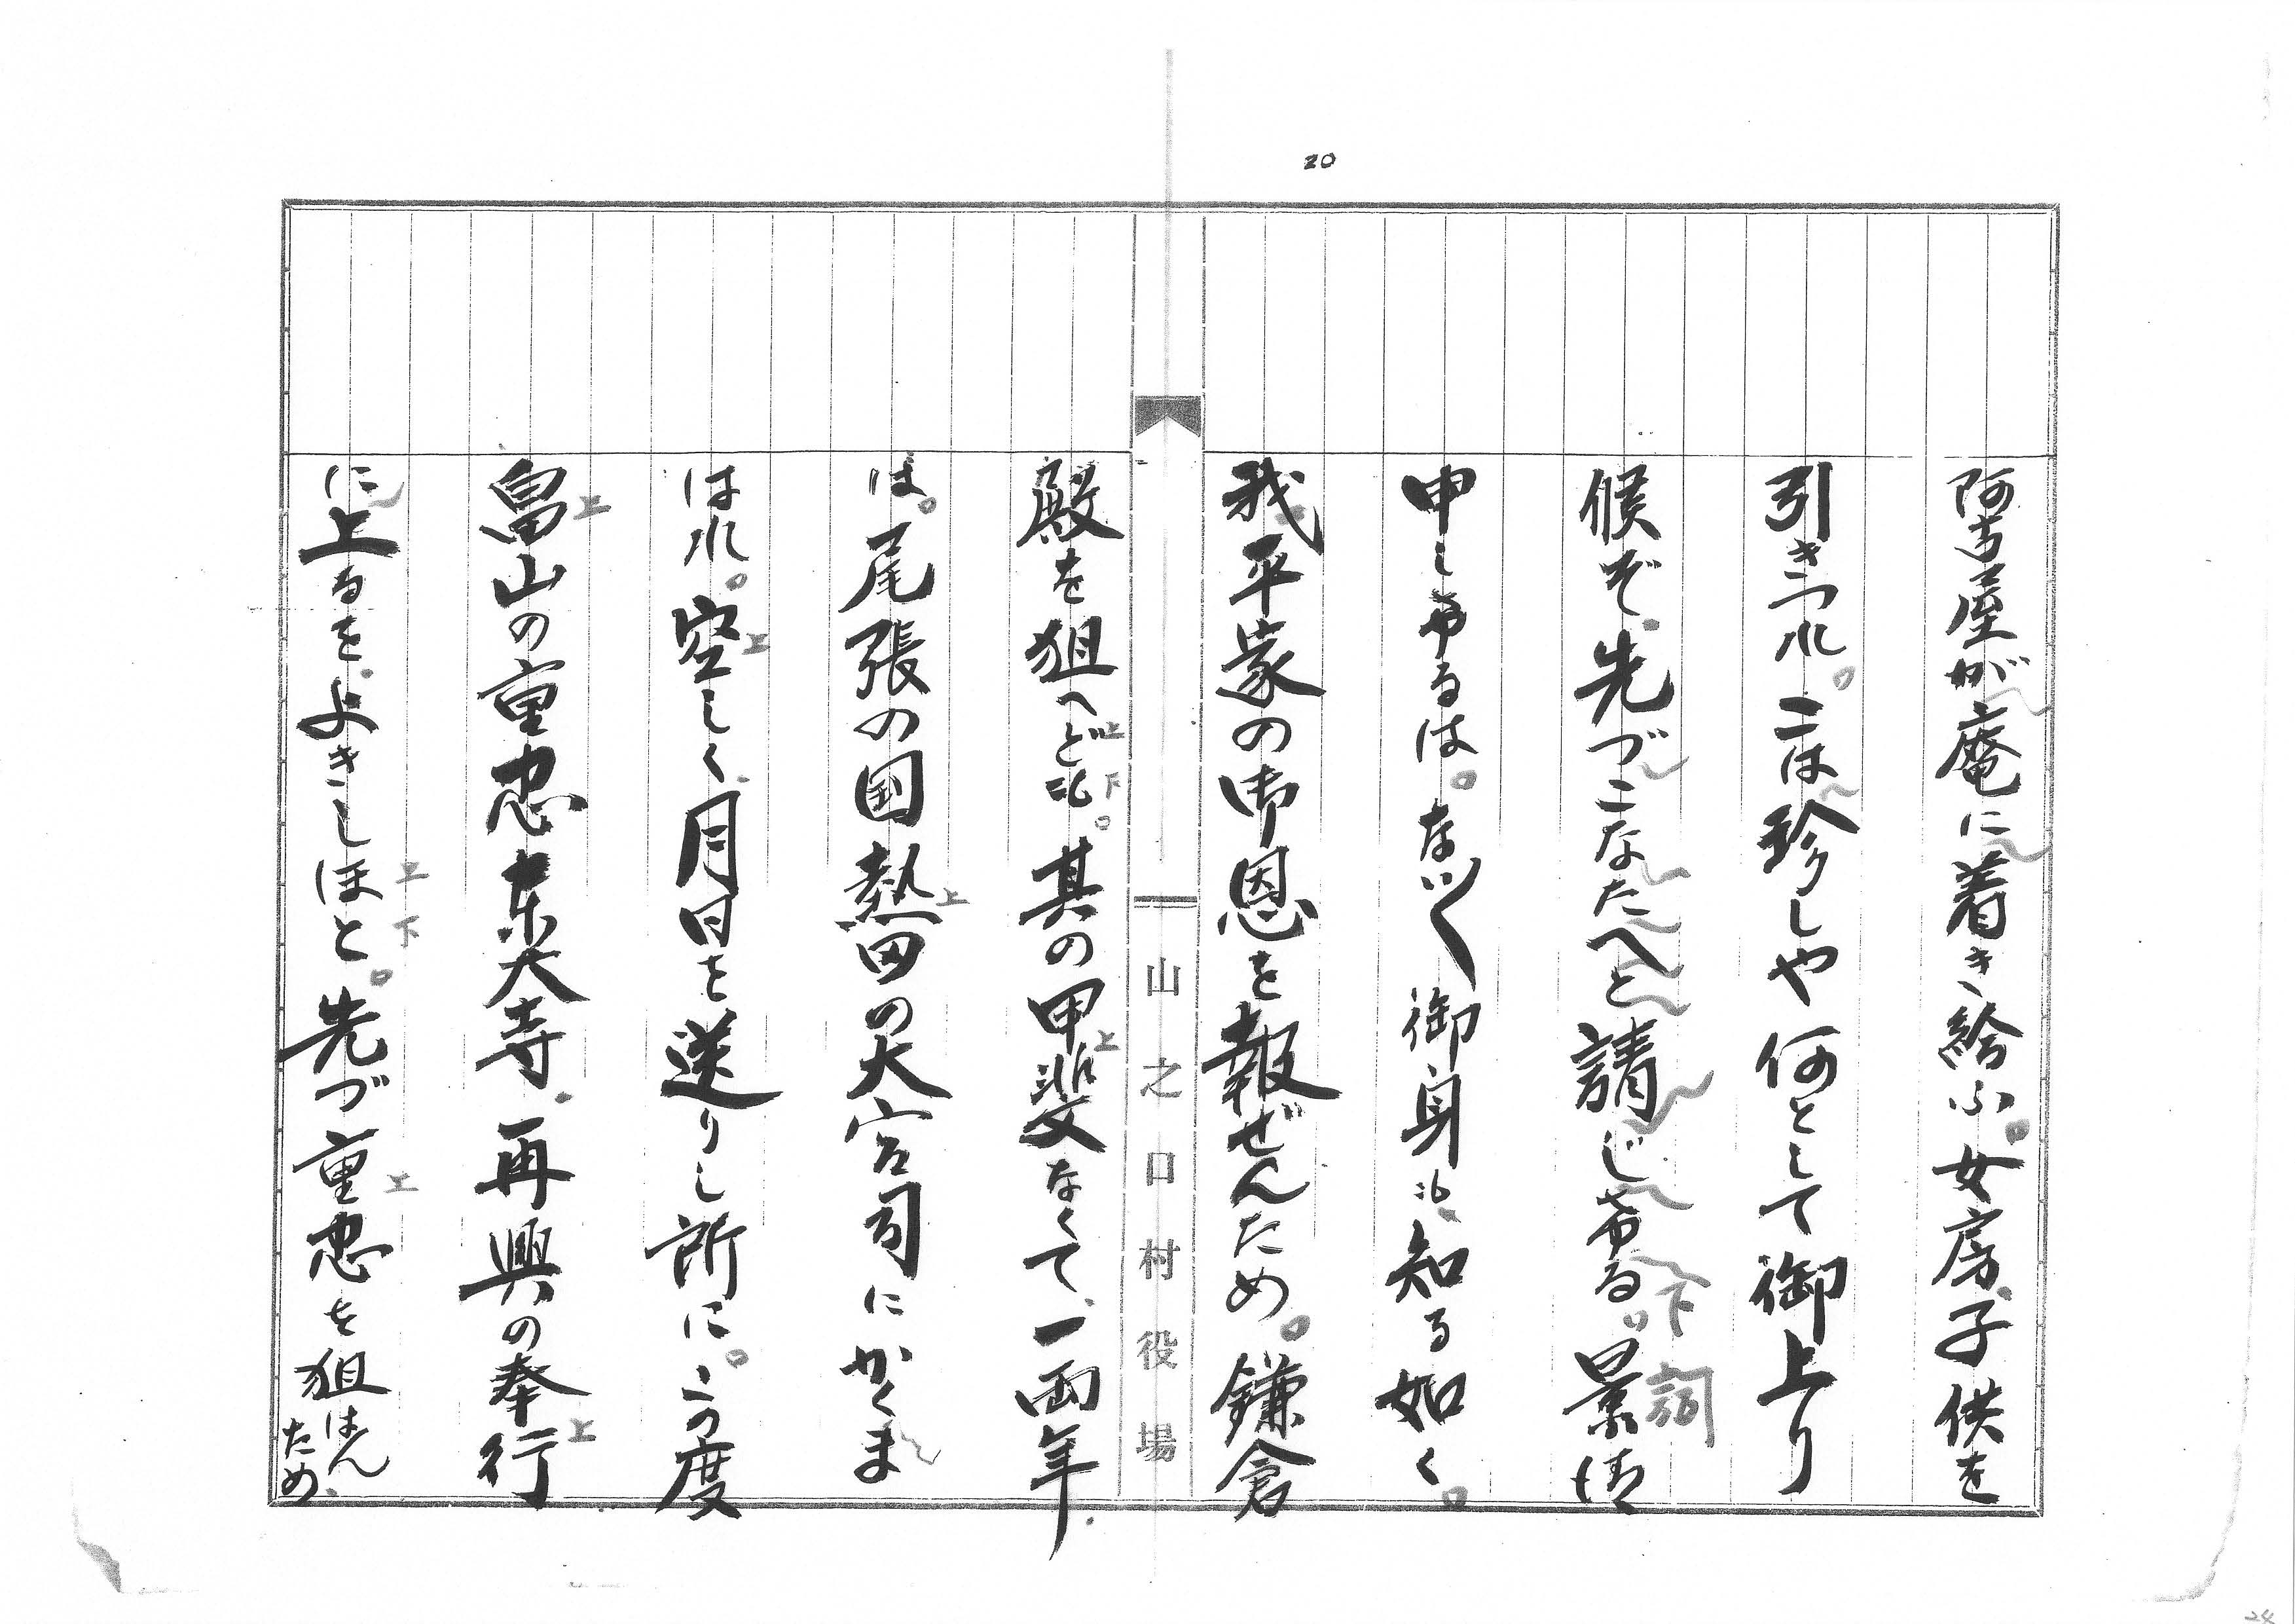 20
阿古屋が庵に着き給ふ。女房、子供を
引きつれ。こは珍しや何として御上り
候ぞ、先づこなたへと請じける。景清
下 詞
申しけるは。なな〱御身も、知る如く。
我平家の御恩を報ぜんため。鎌倉
山之口村役場
殿を狙へども。其の甲斐なくて、一両年、
上 下 上
ば。尾張の国熱田の大宮司にかくま
上
はれ。空しく、月日を送りし所に。この度
上
畠山の重忠東大寺、再興の奉行
上 上
に上るを、よきしほと。先づ重忠を狙はんため
上 下 上
24